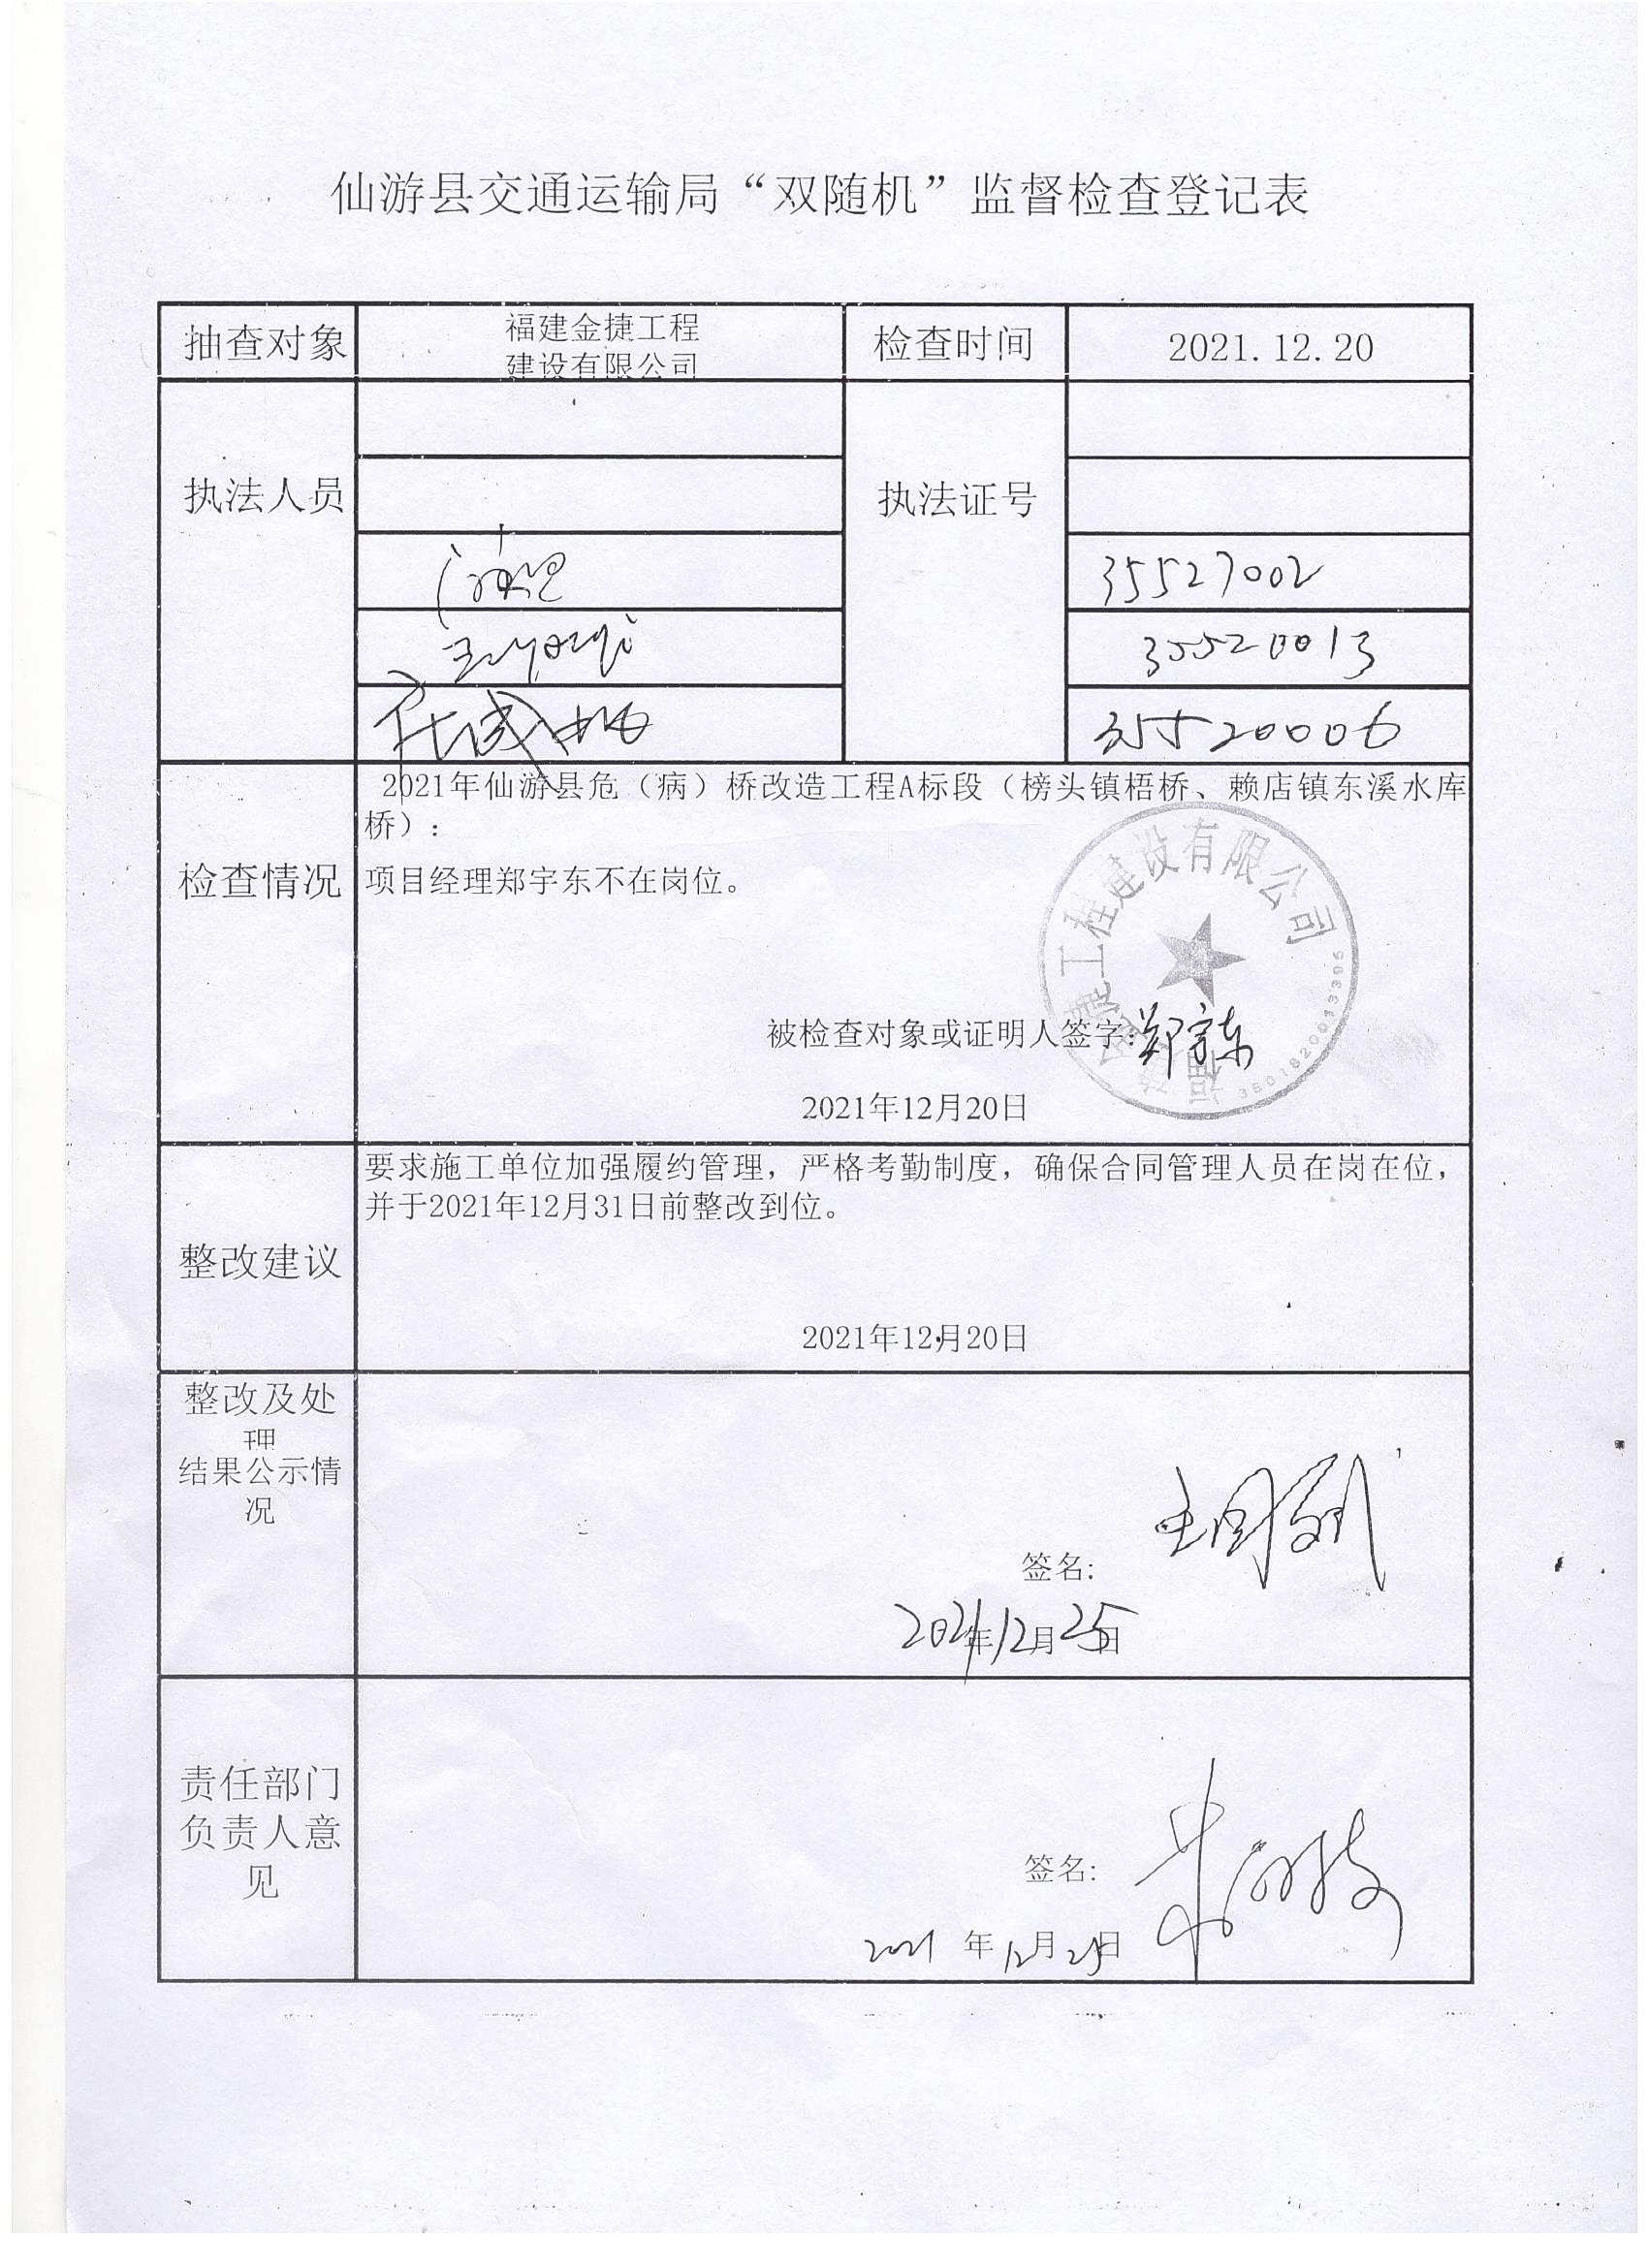 仙游县交通运输局“双随机”监督检查登记表
抽查对象
福建金捷工程
建设有限公司
检查时间
2021.12.20
执法人员
执法证号
35527002
35520013
35520006
检查情况
2021年仙游县危（病）桥改造工程A标段（榜头镇梧桥、赖店镇东溪水库
桥）：
项目经理郑宇东不在岗位。
被检查对象或证明人签字：郑宇东
2021年12月20日
福建金捷工程建设有限公司
整改建议
要求施工单位加强履约管理，严格考勤制度，确保合同管理人员在岗在位，
并于2021年12月31日前整改到位。
2021年12月20日
整改及处
理
结果公示情
况
签名:
2021年12月25日
责任部门
负责人意
见
签名:
2021年12月25日